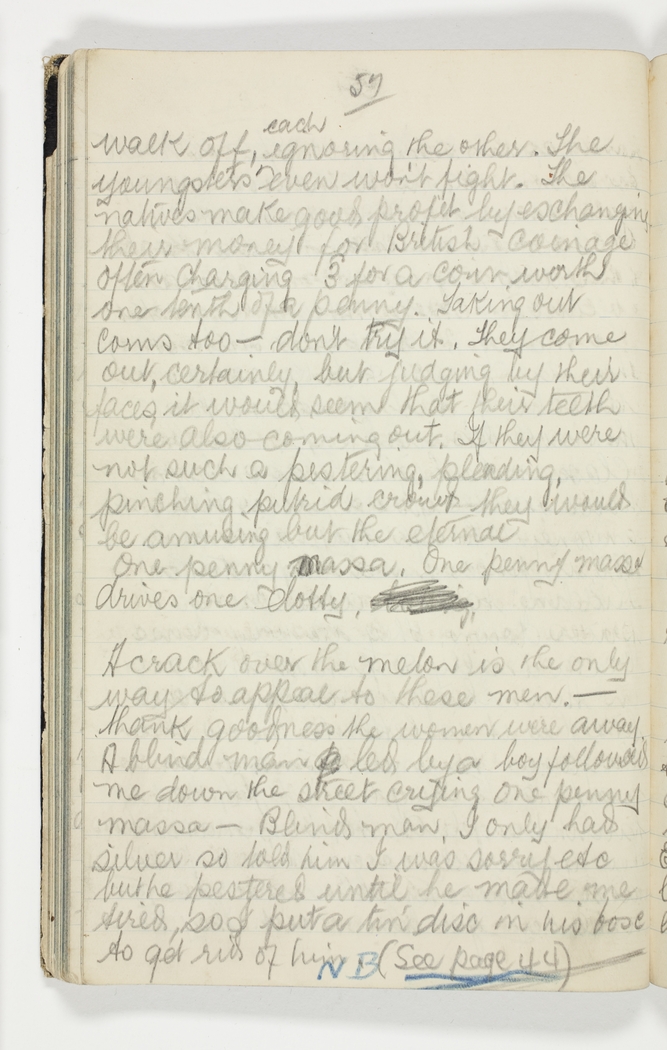 57
each
walk off, ignoring the other. The
youngsters even won't fight. The
natives make good profit by exchanging
their money for British coinage
often charging 3 for a coin worth
one tenth of a penny. Taking out
coins too — don't try it. They come
out, certainly, but judging by their
faces it would seem that their teeth
were also coming out. If they were
not such a pestering, pleading,
pinching putrid crowd they would
be amusing but the eternal
One penny massa. One penny massa
drives one dotty.
A crack over the melon is the only
way to appeal to these men. —
thank goodness the women were away.
A blind man led by a boy followed
me down the street crying One penny
massa — Blind man. I only had
silver so told him I was sorry etc
but he pestered until he made me
tired, so I put a tin disc in his box
to get rid of him. (See page 44)
NB